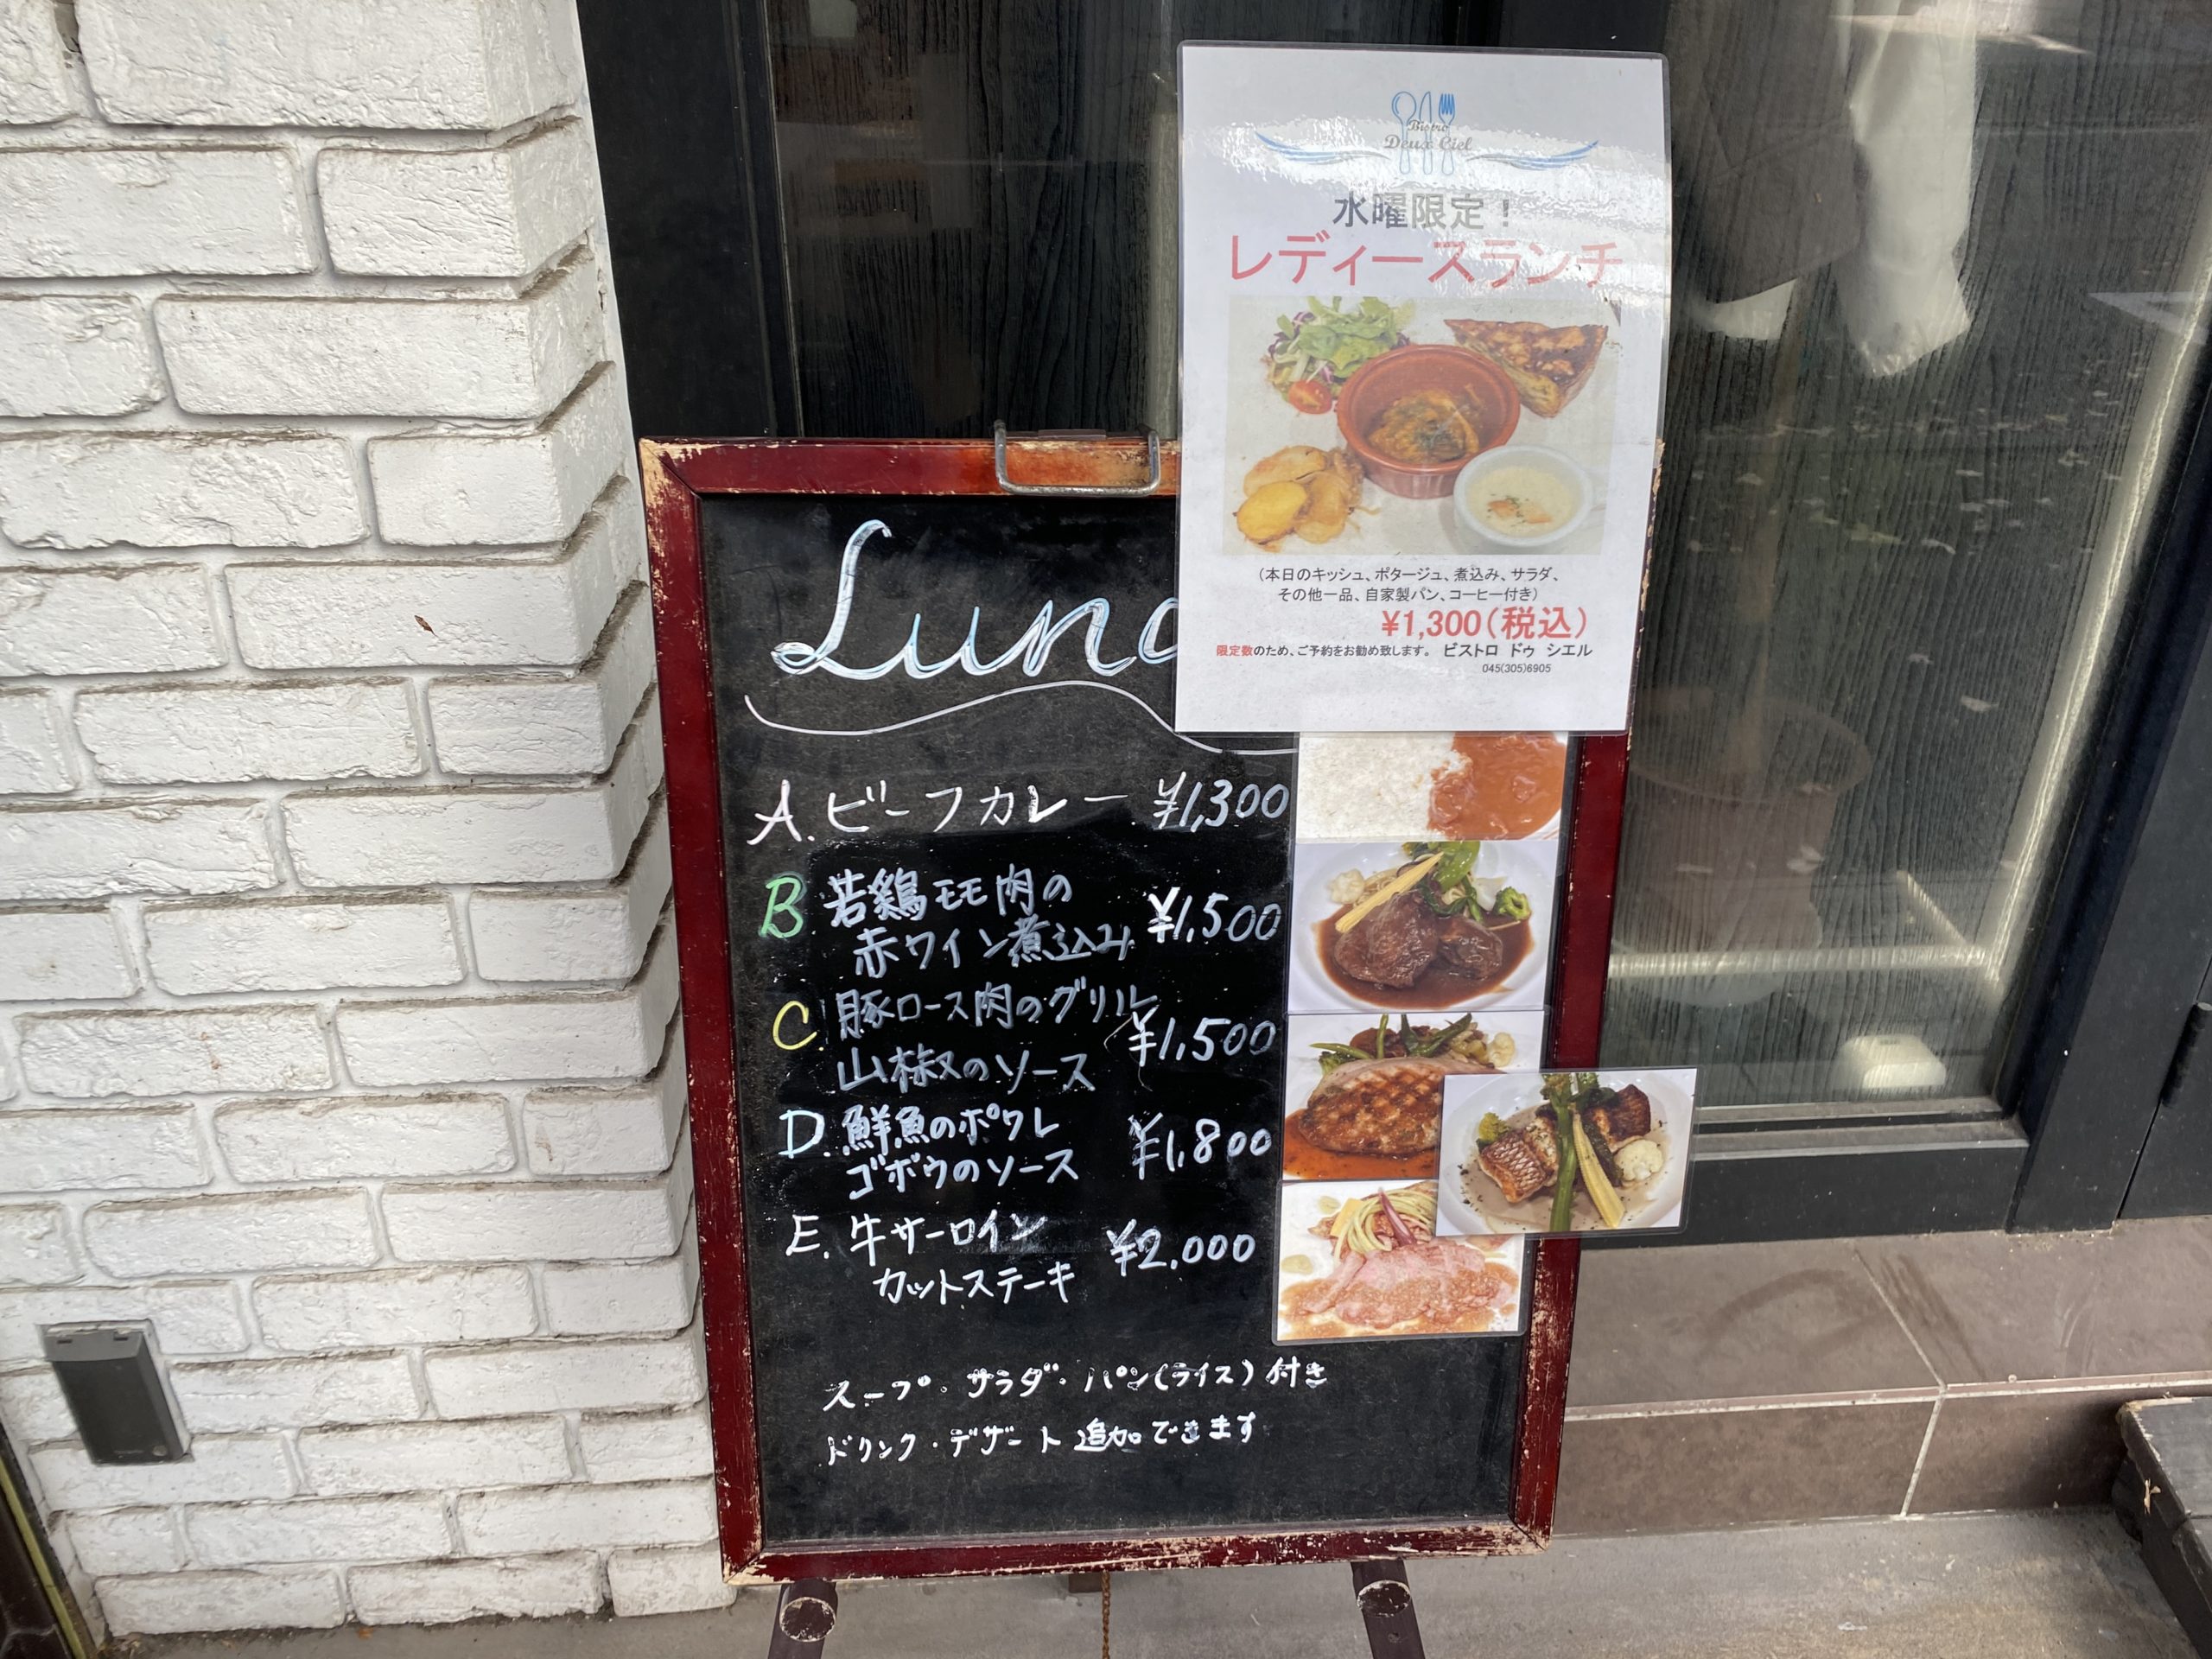 Bistro
Deux Ciel
水曜限定！
レディースランチ
（本日のキッシュ、ポタージュ、煮込み、サラダ、
その他一品、自家製パン、コーヒー付き）
¥1,300（税込）
限定数のため、ご予約をお勧め致します。 ビストロ ドゥ シエル
045(305)6905
Lunc
A. ビーフカレー ¥1,300
B. 若鶏モモ肉の
赤ワイン煮込み ¥1,500
C. 豚ロース肉のグリル
山椒のソース ¥1,500
D. 鮮魚のポワレ
ゴボウのソース ¥1,800
E. 牛サーロイン
カットステーキ ¥2.000
スープ・サラダ・パン(ライス)付き
ドリンク・デザート追加できます